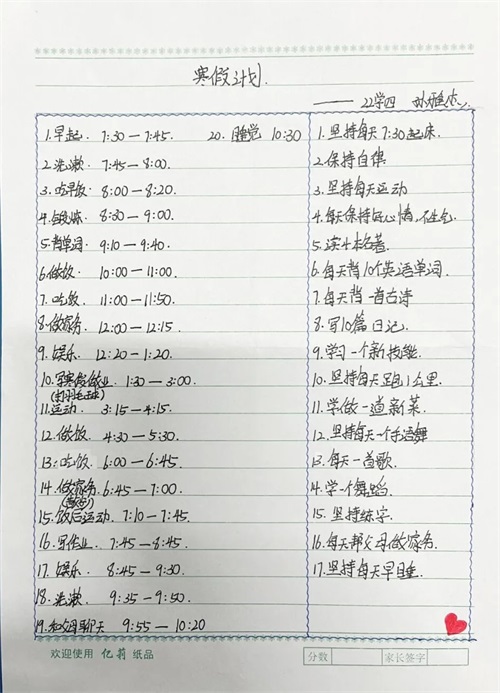 寒假计划.
——22学四 孙雅杰.
1.早起. 7:30—7:45. 20. 睡觉 10:30
2.洗漱. 7:45—8:00.
3.吃早饭. 8:00—8:20
4.锻炼. 8:30—9:00.
5.背单词. 9:10—9:40.
6.做饭 10:00—11:00.
7.吃饭. 11:00—11:50
8.做家务. 12:00—12:15.
9.娱乐. 12:20—1:20.
10.写寒假作业. 1:30—3:00.
(打羽毛球)
11.运动. 3:15—4:15.
12.做饭. 4:30—5:30.
13.吃饭. 6:00—6:45
14.做家务. 6:45—7:00
15.饭后运动. 7:10—7:45.
16.写作业. 7:45—8:45.
17.娱乐. 8:45—9:30.
18.洗漱. 9:35—9:50.
19.和父母聊天 9:55—10:20
1.坚持每天7:30起床.
2.保持自律.
3.坚持每天运动
4.每天保持好心情,不生气.
5.读4本名著.
6.每天背10个英语单词.
7.每天背一首古诗
8.写10篇日记.
9.学习一个新技能.
10.坚持每天跑1公里.
11.学做一道新菜.
12.坚持每天一个手语舞
13.每天一首歌.
14.学一个舞蹈.
15.坚持练字.
16.每天帮父母做家务.
17.坚持每天早睡.
欢迎使用 亿莉 纸品
分数 家长签字